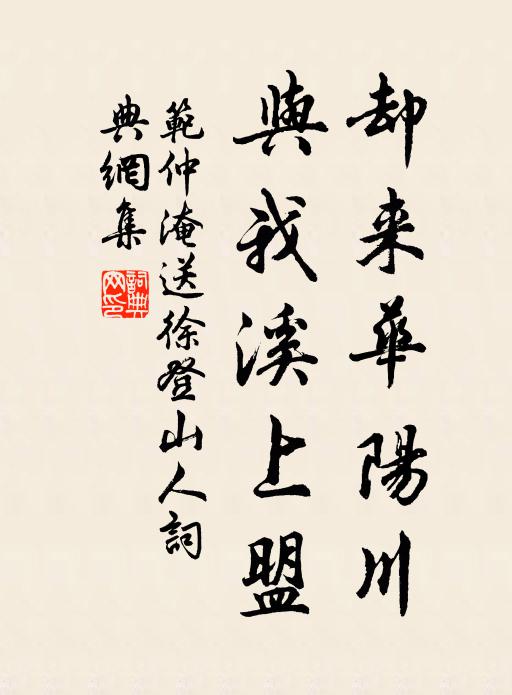 却来華陽川
與我溪上盟
範仲淹送徐登山人詞
典網集
詞典网印